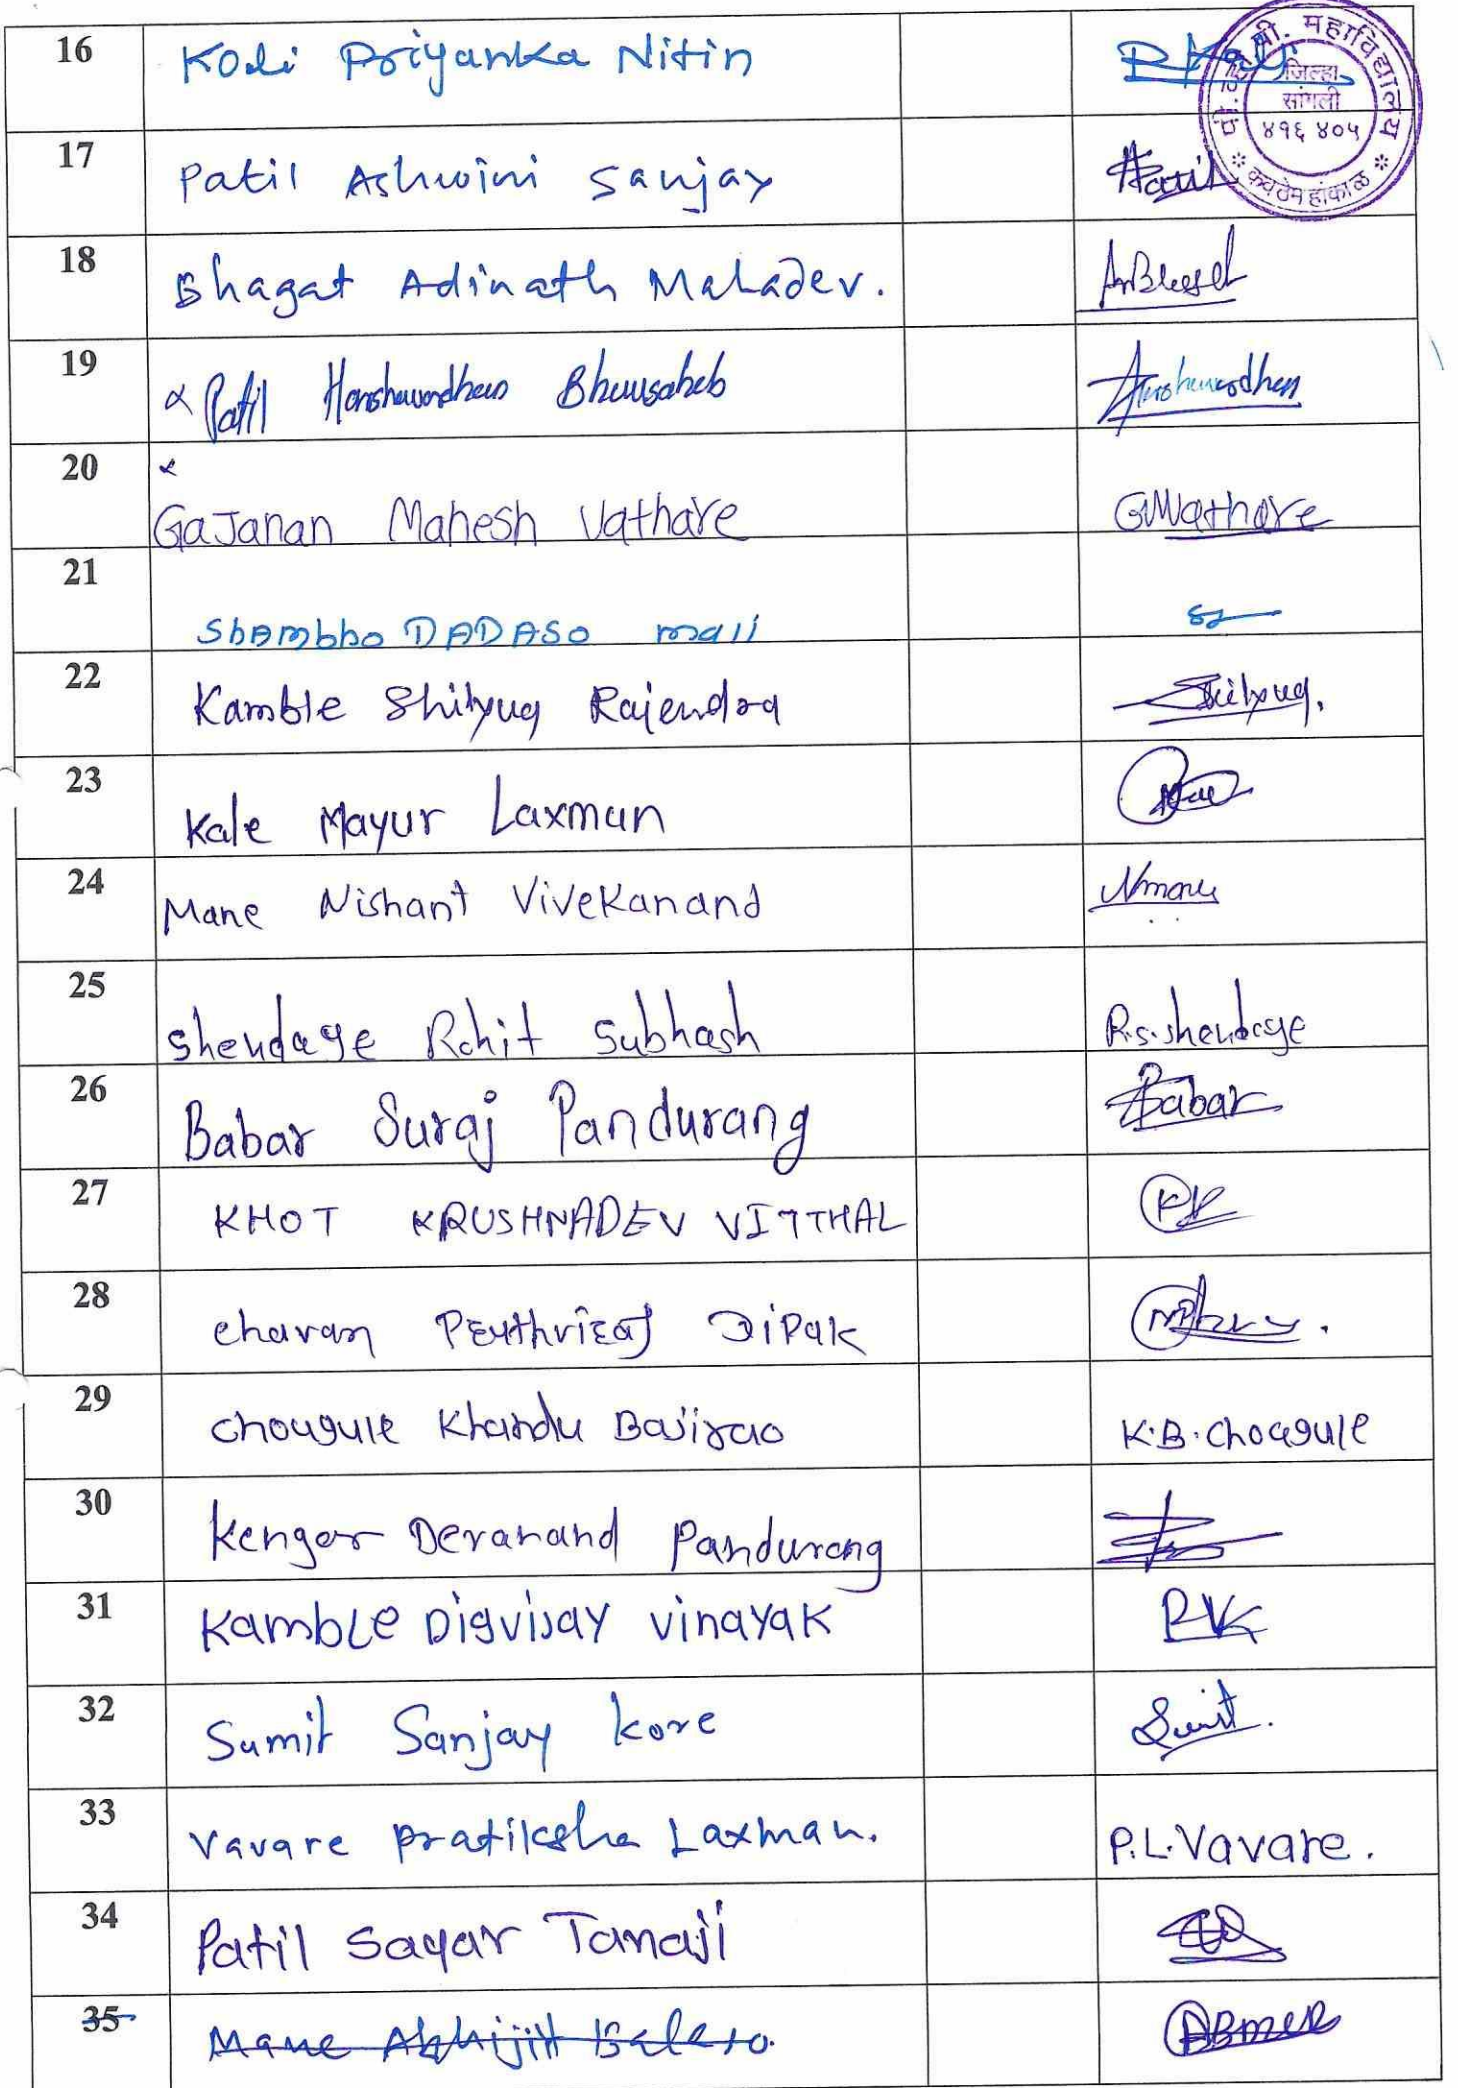 16 Koli Priyanka Nitin
पी. महाविद्यालय
जिल्हा
सांगली
४१६ ४०५
कवठेमहांकाळ
17 Patil Ashwini Sanjay
18 Bhagat Adinath Mahadev.
19 Patil Harshawardhan Bhausaheb Harshawardhan
20 Gajanan Mahesh Vathare GMVathare
21 Shambho DADASO mali
22 Kamble Shilyug Rajendra Shilyug.
23 Kale Mayur Laxman
24 Mane Nishant Vivekanand Nmane
25 Shendage Rohit Subhash R.S.Shendage
26 Babar Suraj Pandurang Babar
27 KHOT KRUSHNADEV VITTHAL
28 Chavan Dipak
29 Chougule Khandu Bajirao K.B.Chougule
30 Kengar Devanand Pandurang
31 Kamble Digvijay Vinayak
32 Sumit Sanjay Kore Sumit.
33 Vavare Pratiksha Laxman. P.L.Vavare.
34 Patil Sagar Tanaji
35 Mane Abhijit